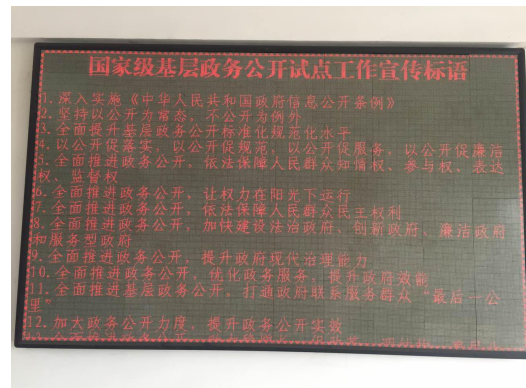 国家级基层政务公开试点工作宣传标语
1.深入实施《中华人民共和国政府信息公开条例》
2.坚持以公开为常态，不公开为例外
3.全面提升基层政务公开标准化规范化水平
4.以公开促落实，以公开促规范，以公开促服务，以公开促廉洁
5.全面推进政务公开，依法保障人民群众知情权、参与权，表达
权、监督权
6.全面推进政务公开，让权力在阳光下运行
7.全面推进政务公开，依法保障人民群众民主权利
8.全面推进政务公开，加快建设法治政府、创新政府、廉洁政府
和服务型政府
9.全面推进政务公开，提升政府现代治理能力
10.全面推进政务公开，优化政务服务，提升政府效能
11.全面推进基层政务公开，打通政府联系服务群众“最后一公
里”
12.加大政务公开力度，提升政务公开实效